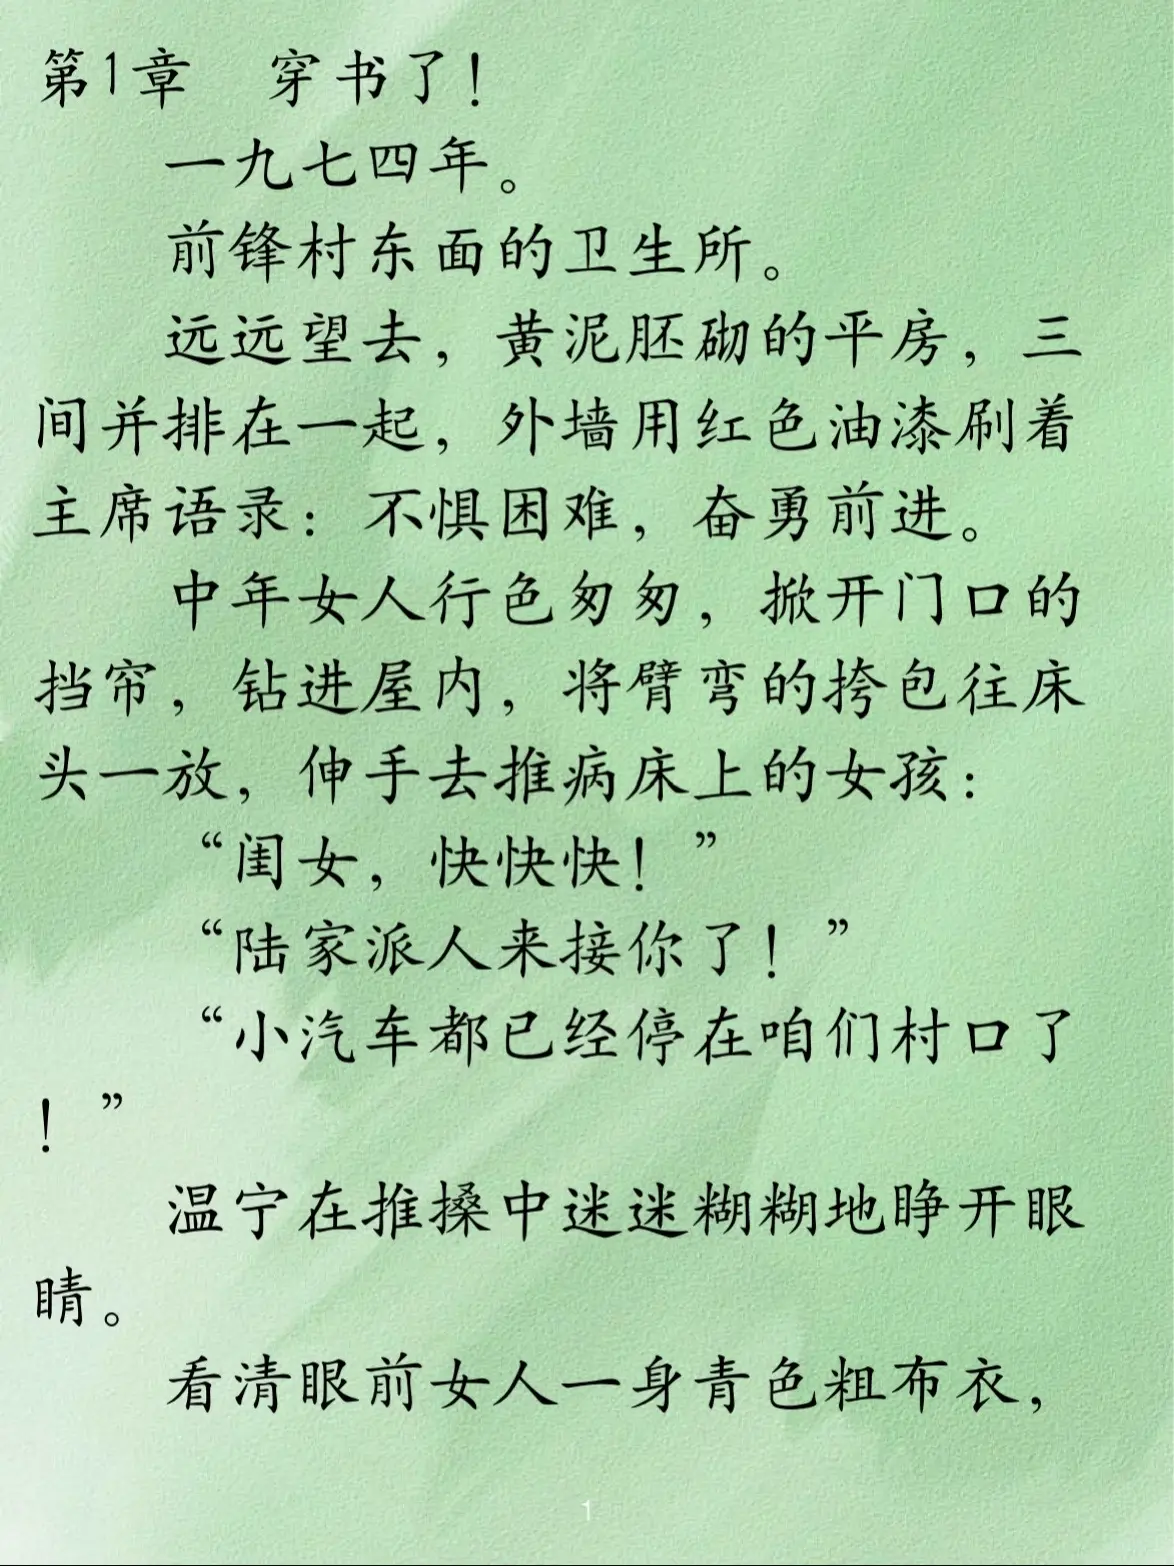 第1章　穿书了！
一九七四年。
前锋村东面的卫生所。
远远望去，黄泥胚砌的平房，三
间并排在一起，外墙用红色油漆刷着
主席语录：不惧困难，奋勇前进。
中年女人行色匆匆，掀开门口的
挡帘，钻进屋内，将臂弯的挎包往床
头一放，伸手去推病床上的女孩：
“闺女，快快快！”
“陆家派人来接你了！”
“小汽车都已经停在咱们村口了
！”
温宁在推搡中迷迷糊糊地睁开眼
睛。
看清眼前女人一身青色粗布衣，
1